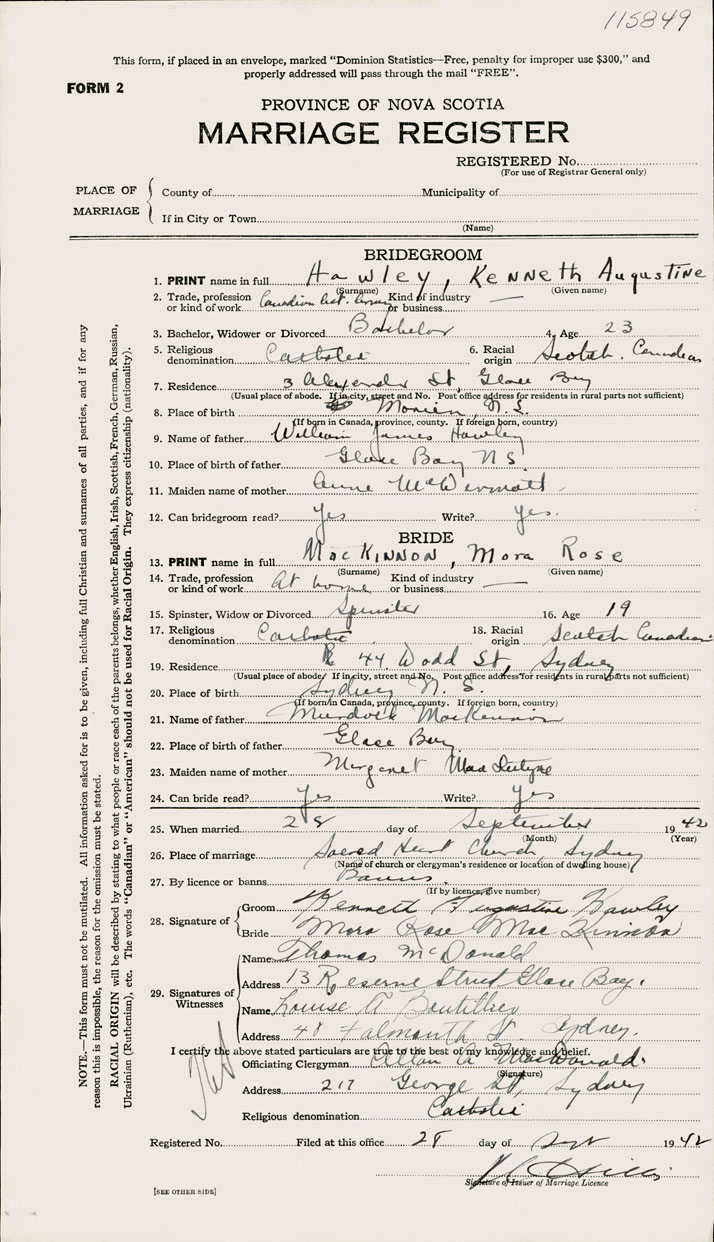 115849
This form, if placed in an envelope, marked "Dominion Statistics—Free, penalty for improper use $300," and
properly addressed will pass through the mail "FREE".
FORM 2
PROVINCE OF NOVA SCOTIA
MARRIAGE REGISTER
REGISTERED No.
(For use of Registrar General only)
PLACE OF MARRIAGE
County of Municipality of
If in City or Town
(Name)
BRIDEGROOM
1. PRINT name in full Hawley, Kenneth Augustine
(Surname) (Given name)
2. Trade, profession or kind of work Canadian Kind of industry or business —
3. Bachelor, Widower or Divorced Bachelor 4. Age 23
5. Religious denomination Catholic 6. Racial origin Scotch. Canadian
7. Residence 3 Alexander St, Glace Bay
(Usual place of abode. If in city, street and No. Post office address for residents in rural parts not sufficient)
8. Place of birth Morien, N.S.
(If born in Canada, province, county. If foreign born, country)
9. Name of father William James Hawley
10. Place of father Glace Bay NS
11. Maiden name of mother Anne McDermott
12. Can bridegroom read? Yes Write? Yes.
BRIDE
13. PRINT name in full MacKinnon, Mora Rose
(Surname) (Given name)
14. Trade, profession or kind of work At home Kind of industry or business —
15. Spinster, Widow or Divorced Spinster 16. Age 19
17. Religious denomination Catholic 18. Racial origin Scotch Canadian
19. Residence 44 Dodd St, Sydney
(Usual place of abode. If in city, street and No. Post office address for residents in rural parts not sufficient)
20. Place of birth Sydney N. S.
(If born in Canada, province, county. If foreign born, country)
21. Name of father Murdock MacKinnon
22. Place of birth of father Glace Bay
23. Maiden name of mother Margaret MacIntyre
24. Can bride read? Yes Write? Yes
25. When married 28 day of September 1942
(Month) (Year)
26. Place of marriage Sacred Heart Church, Sydney
(Name of church or clergyman's residence or location of dwelling house)
27. By licence or banns Banns
(If by licence, give number)
28. Signature of Groom Kenneth Augustine Hawley
Bride Mora Rose MacKinnon
29. Signatures of Witnesses
Name Thomas McDonald
Address 13 Reserve Street Glace Bay.
Name Louise A Boutilier
Address 48 Falmouth St Sydney.
I certify the above stated particulars are true to the best of my knowledge and belief.
Officiating Clergyman Allan A MacDonald
(Signature)
Address 217 George St, Sydney
Religious denomination Catholic
Registered No. Filed at this office 28 day of Sept 1942
Signature of Issuer of Marriage Licence
[SEE OTHER SIDE]
NOTE.—This form must not be mutilated. All information asked for is to be given, including full Christian and surnames of all parties, and if for any
reason this is impossible, the reason for the omission must be stated.
RACIAL ORIGIN will be described by stating to what people or race each of the parents belongs, whether English, Irish, Scottish, French, German, Russian,
Ukrainian (Ruthenian), etc. The words "Canadian" or "American" should not be used for Racial Origin. They express citizenship (nationality).